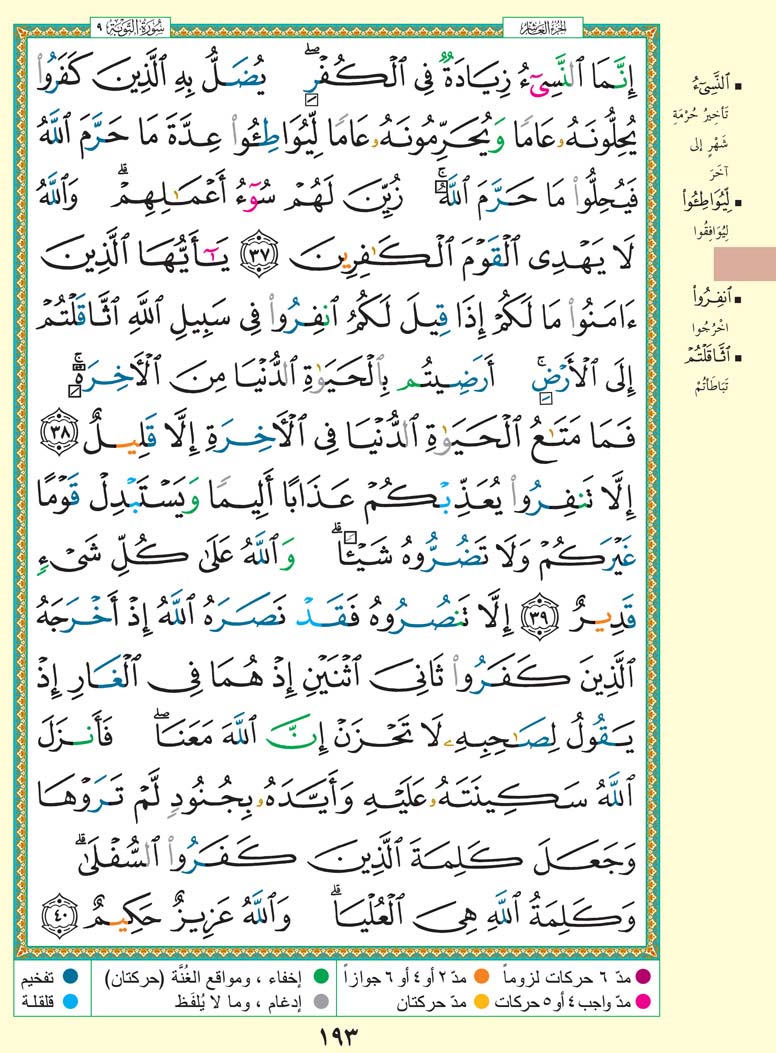 الجزء العاشر
سُورَةُ التَّوبَة ٩
إِنَّمَا ٱلنَّسِىٓءُ زِيَادَةٌ فِى ٱلْكُفْرِ ۖ يُضَلُّ بِهِ ٱلَّذِينَ كَفَرُوا۟
يُحِلُّونَهُۥ عَامًا وَيُحَرِّمُونَهُۥ عَامًا لِّيُوَاطِـُٔوا۟ عِدَّةَ مَا حَرَّمَ ٱللَّهُ
فَيُحِلُّوا۟ مَا حَرَّمَ ٱللَّهُ ۚ زُيِّنَ لَهُمْ سُوٓءُ أَعْمَـٰلِهِمْ ۗ وَٱللَّهُ
لَا يَهْدِى ٱلْقَوْمَ ٱلْكَـٰفِرِينَ ٣٧ يَـٰٓأَيُّهَا ٱلَّذِينَ
ءَامَنُوا۟ مَا لَكُمْ إِذَا قِيلَ لَكُمُ ٱنفِرُوا۟ فِى سَبِيلِ ٱللَّهِ ٱثَّاقَلْتُمْ
إِلَى ٱلْأَرْضِ ۚ أَرَضِيتُم بِٱلْحَيَوٰةِ ٱلدُّنْيَا مِنَ ٱلْـَٔاخِرَةِ ۚ
فَمَا مَتَـٰعُ ٱلْحَيَوٰةِ ٱلدُّنْيَا فِى ٱلْـَٔاخِرَةِ إِلَّا قَلِيلٌ ٣٨
إِلَّا تَنفِرُوا۟ يُعَذِّبْكُمْ عَذَابًا أَلِيمًا وَيَسْتَبْدِلْ قَوْمًا
غَيْرَكُمْ وَلَا تَضُرُّوهُ شَيْـًٔا ۗ وَٱللَّهُ عَلَىٰ كُلِّ شَىْءٍ
قَدِيرٌ ٣٩ إِلَّا تَنصُرُوهُ فَقَدْ نَصَرَهُ ٱللَّهُ إِذْ أَخْرَجَهُ
ٱلَّذِينَ كَفَرُوا۟ ثَانِىَ ٱثْنَيْنِ إِذْ هُمَا فِى ٱلْغَارِ إِذْ
يَقُولُ لِصَـٰحِبِهِۦ لَا تَحْزَنْ إِنَّ ٱللَّهَ مَعَنَا ۖ فَأَنزَلَ
ٱللَّهُ سَكِينَتَهُۥ عَلَيْهِ وَأَيَّدَهُۥ بِجُنُودٍ لَّمْ تَرَوْهَا
وَجَعَلَ كَلِمَةَ ٱلَّذِينَ كَفَرُوا۟ ٱلسُّفْلَىٰ ۗ
وَكَلِمَةُ ٱللَّهِ هِىَ ٱلْعُلْيَا ۗ وَٱللَّهُ عَزِيزٌ حَكِيمٌ ٤٠
ٱلنَّسِىٓءُ
تَأخِيرُ حُرْمَةِ
شَهْرٍ إلى
آخَرَ
لِّيُوَاطِـُٔوا۟
لِيُوَافِقُوا
ٱنفِرُوا۟
اخْرُجُوا
ٱثَّاقَلْتُمْ
تَبَاطَأتُمْ
مدّ ٦ حركات لزوماً
مدّ ٢ أو ٤ أو ٦ جوازاً
إخفاء ، ومواقع الغُنَّة (حركتان)
تفخيم
مدّ واجب ٤ أو ٥ حركات
مدّ حركتان
إدغام ، وما لا يُلفَظ
قلقلة
١٩٣